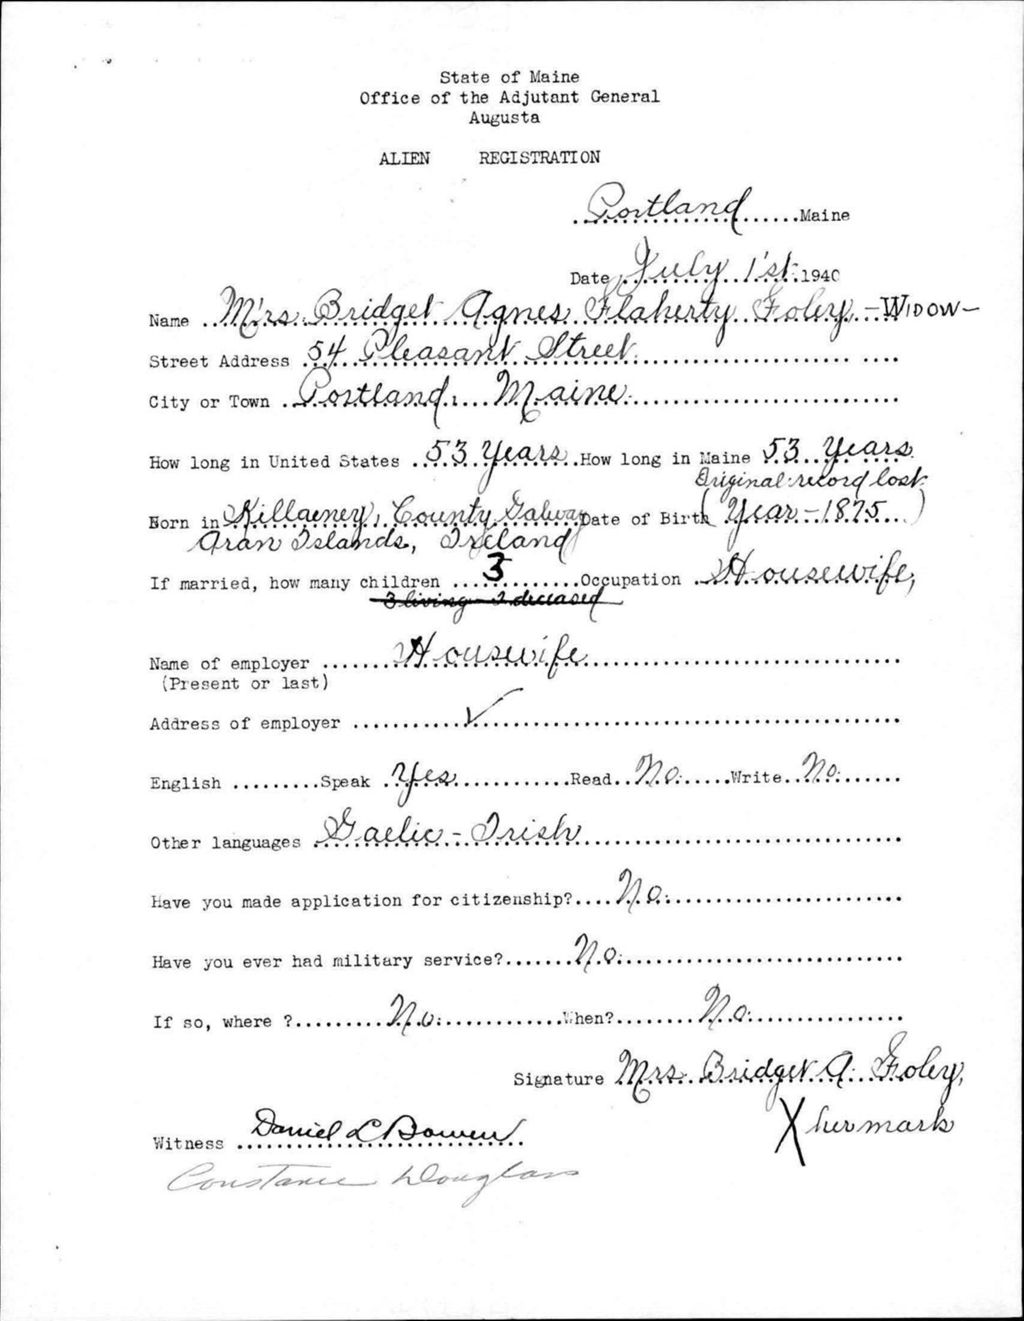 State of Maine
Office of the Adjutant General
Augusta
ALIEN REGISTRATION
Portland Maine
Date July 1'st. 1940
Name Mrs. Bridget Agnes Flaherty Foley - WIDOW -
Street Address 54 Pleasant Street
City or Town Portland, Maine.
How long in United States 53 Years How long in Maine 53 Years
Original record lost
Born in Killaeney, County Galway Date of Birth (Year - 1875)
Aran Islands, Ireland
If married, how many children 3 Occupation Housewife,
3 living - 2 deceased
Name of employer Housewife
(Present or last)
Address of employer ✓
English Speak Yes Read No. Write No.
Other languages Gaelic - Irish
Have you made application for citizenship? No.
Have you ever had military service? No.
If so, where ? No. When? No.
Signature Mrs. Bridget A. Foley,
X her mark
Witness Daniel L Bowen
Constance Douglass